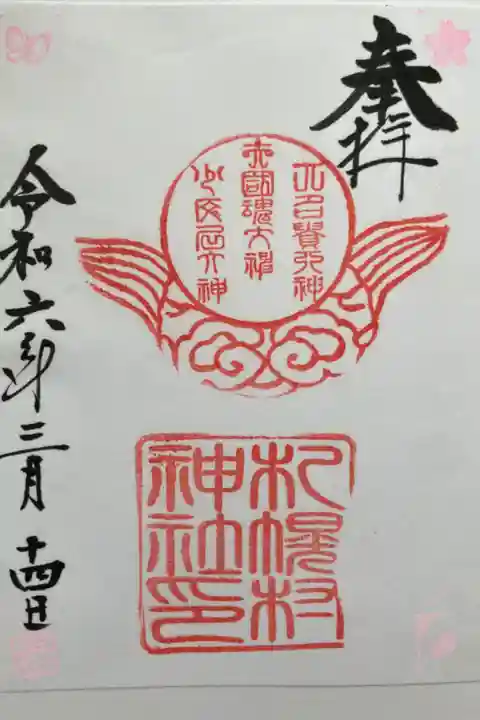 奉拝
大名貴大神
大國魂大神
少彦名大神
札幌村
神社印
令和六年三月十四日